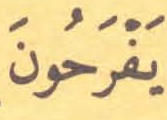 يَفْرَحُونَ